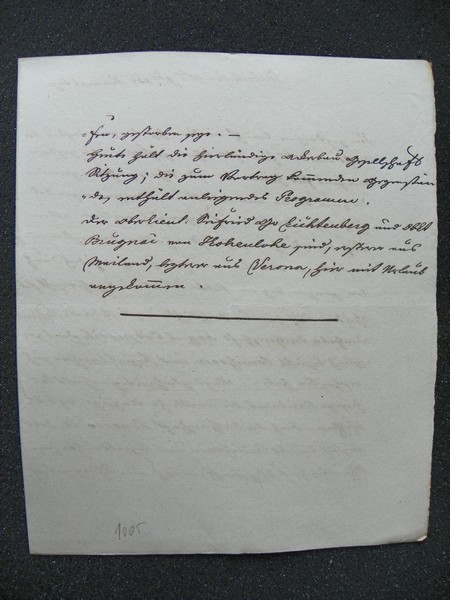 gestorben seye. —
Heute hält die hierländige Ackerbau Gesellschaft
Sitzung; die zum Vortrag kommenden Gegenstän-
de, enthält anliegendes Programm.
Der Oberlieut. Seifried Gr. Lichtenberg und Oblt
Brugnai von Hohenlohe sind, erstere aus
Mailand, letzterer aus Verona, hier mit Urlaub
angekommen.
1005